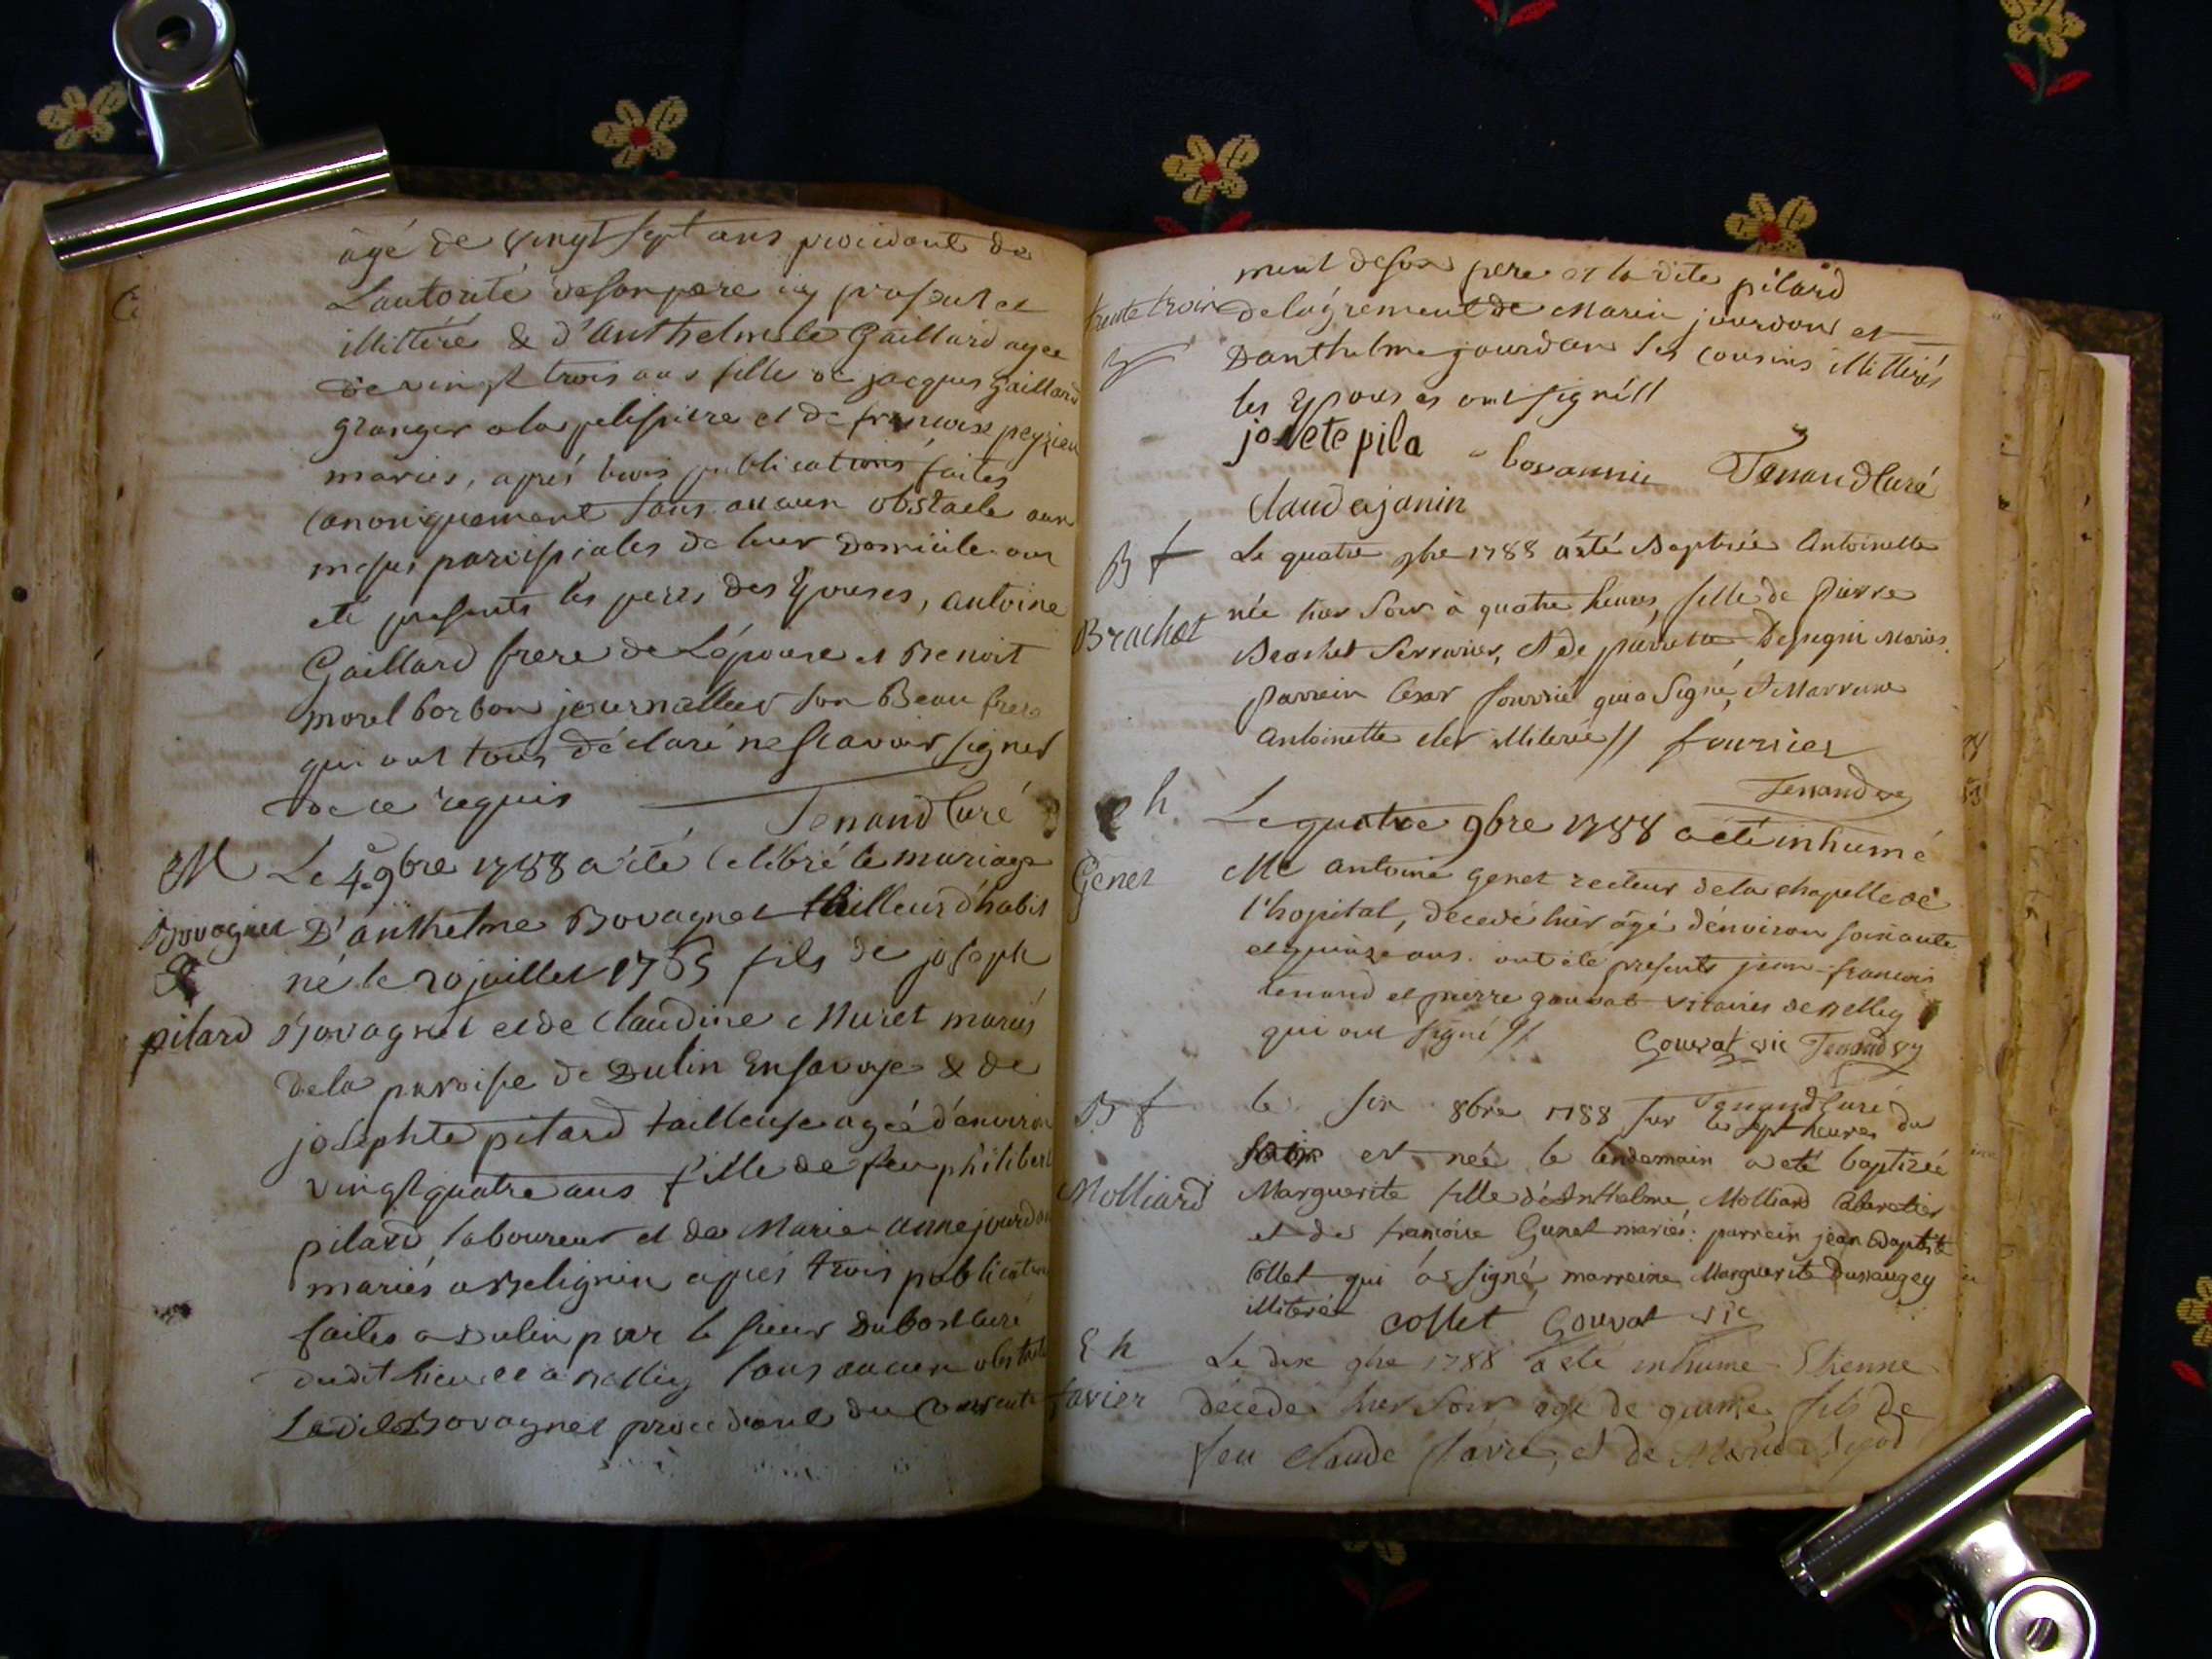 âgé de vingt sept ans procedant de
L'autorité de son pere icy present et
illitéré & d'anthelmete Gaillard agee
de vingt trois ans fille de jacques gaillard
granger a la pelissiere et de francoise peyzieu
mariés, aprés trois publications faites
canoniquement sans aucun obstacle aux
messes paroissiales de leur domicile. ont
eté presents les peres des Epouses, antoine
Gaillard frere de L'épouse et Benoit
morel borbon journallier son Beau frere
qui ont tous déclaré ne scavoir signer
de ce requis
Tenand Curé
M Le 4e 9bre 1788 a été célébré le mariage
Bovagnet D'anthelme Bovagnet tailleur d'habit
& né le 20 juillet 1765 fils de joseph
pilard Bovagnet et de Claudine Muret mariés
de la paroisse de Dulin En savoye & de
josephte pilard tailleuse agée d'environ
vingt quatre ans fille de feu philibert
pilard laboureur et de Marie anne jourdan
mariés a Belignin aprés trois publications
faites a Dulin par le sieur Dubost curé
dudit lieu et a Belley sans aucun obstacle
Ledit Bovagnet procedant du consente
ment de son pere et la dite pilard
trente trois de l'agrement de Marin jourdan et
D'anthelme jourdan ses cousins illitérés
les Epouses ont signé //
josete pila bovannie Tenand Curé
claude janin
B f Le quatre 9bre 1788 a été Baptisée Antoinette
née hier soir à quatre heures, fille de Pierre
Brachet Brachet Serrurier, et de pierrette Depigni Mariés.
parrein Cesar fourrié qui a signé, et Marreine
antoinette cler illiterée // fourrier
Tenand vic
h Le quatre 9bre 1788 a été inhumé
Genet Me antoine genet recteur de la chapelle de
l'hopital, décédé hier âgé d'environ soixante
et quinze ans. ont été presents jean-francois
tenand et pierre gouvat vicaires de Belley
qui ont signé // Gouvat vic Tenand vic
Tenand Curé
B f le six 8bre 1788 sur les sept heures du
soir est neé le lendemain a eté baptizée
Molliard Marguerite fille d'Anthelme Molliard Cabaretier
et de françoise Gunet mariés: parrein jean Baptiste
Collet qui a signé, marreine Marguerite Dussaugey
illiterée collet Gouvat vic
E h Le dix 9bre 1788 a été inhumé Etienne
favier décédé hier soir agé de quinze, fils de
feu Claude favier, et de Marie